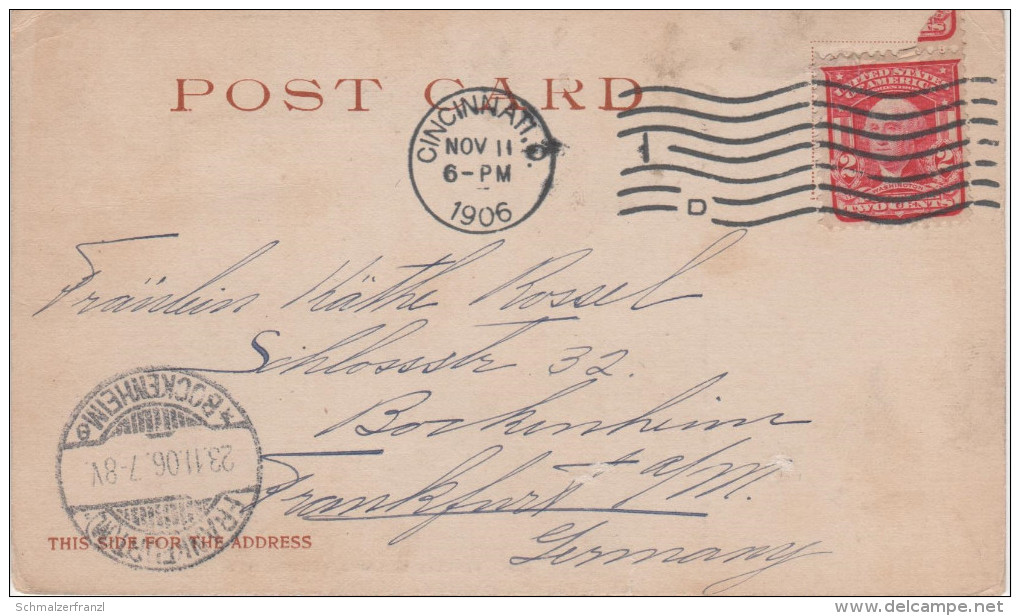 POST CARD
CINCINNATI, O.
NOV 11
6-PM
1906
1
D
UNITED STATES
OF AMERICA
2 2
WASHINGTON
TWO CENTS
Fräulein Käthe Rossel
Schlossstr 32.
Bockenheim
Frankfurt a/M.
Germany
BOCKENHEIM
23.11.06. 7-8V.
FRANKFURT (M)
THIS SIDE FOR THE ADDRESS
Schmalzerfranzl
delcampe.net